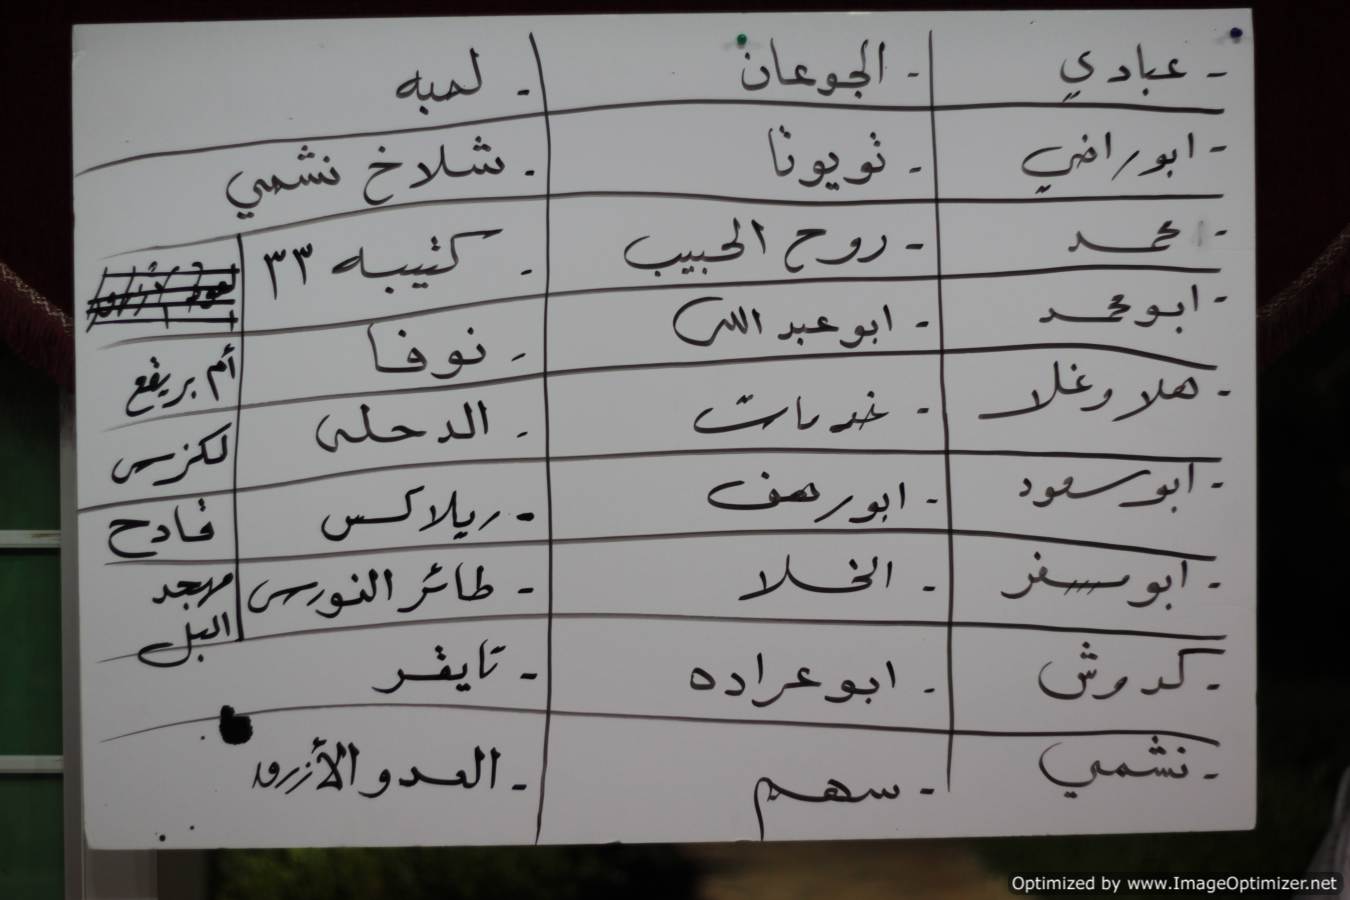 - عبادي
- ابوراضي
- محمد
- ابومحمد
- هلا وغلا
- ابوسعود
- ابوسفر
- كدوش
- نشمي
- الجوعان
- نويونا
- روح الحبيب
- ابوعبد الله
- ابورهف
- الخلا
- ابوعراده
- سهم
- لحبه
- شلاخ نشمي
- كتيبه ٣٣
- نوفا
- الدحلي
- ريلاكس
- طائر النورس
- تايقر
- العدو الأزرق
أم بريقع
لكزس
قادح
مهجد
البل
Optimized by www.ImageOptimizer.net